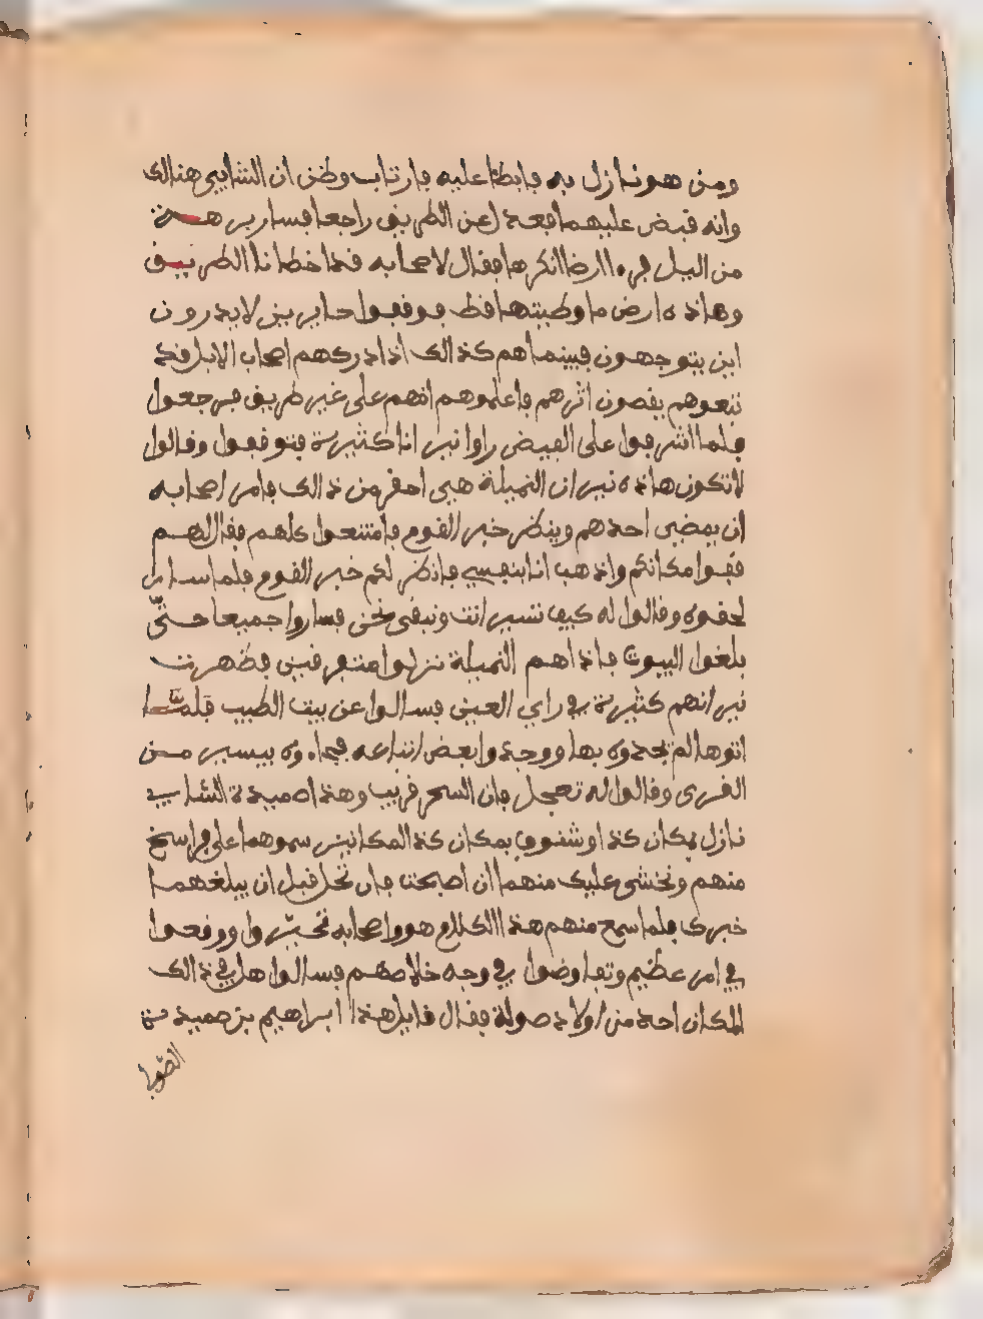 ومن هو نازل به فابطا عليه فارتاب وظن ان الشابي هنالك
وانه قبض عليهما فعدل عن الطريق راجعا فسار برهة
من اليل فرءا ارضا انكرها فقال لاصحابه قد اخطانا الطريق
وهاذه ارض ما وطيتها قط فوقفوا حايرين لا يدرون
اين يتوجهون فبينما هم كذالك اذ ادركهم اصحاب الابل قد
تبعوهم يقصون اثرهم فاعلموهم انهم على غير طريق فرجعوا
فلما اشرفوا على الفيض راوا نيرانا كثيرة فتوقفوا وقالوا
لا تكون هاذه نيران النميلة هيى احقر من ذالك فامر اصحابه
ان يمضي احدهم وينظر خبر القوم فامتنعوا كلهم فقال لهم
قفوا مكانكم واذهب انا بنفسي فانظر لكم خبر القوم فلما سار
لحقوه وقالوا له كيف تسير انت ونبقى نحن فساروا جميعا حتى
بلغوا البيوت فاذا هم النميلة نزلوا متفرقين فظهرت
نيرانهم كثيرة في راي العين فسالوا عن بيت الطبيب فلما
اتوها لم يجدوه بها ووجدوا بعض اتباعه فجاءوه بيسير من
القرى وقالوا له تعجل فان السحر قريب وهذا حميدة الشابي
نازل بمكان كذا وشنوف بمكان كذا لمكانين سموهما على فراسخ
منهم ونخشى عليك منهما ان اصبحت فان تحل قبل ان يبلغهما
خبرك فلما سمع منهم هذا الكلام هو واصحابه تحيروا ووقعوا
في امر عظيم وتفاوضوا في وجه خلاصهم فسالوا هل في ذالك
المكان احد من اولاد صولة فقال قايل هذا ابراهيم بن حميدة بن
الصوا